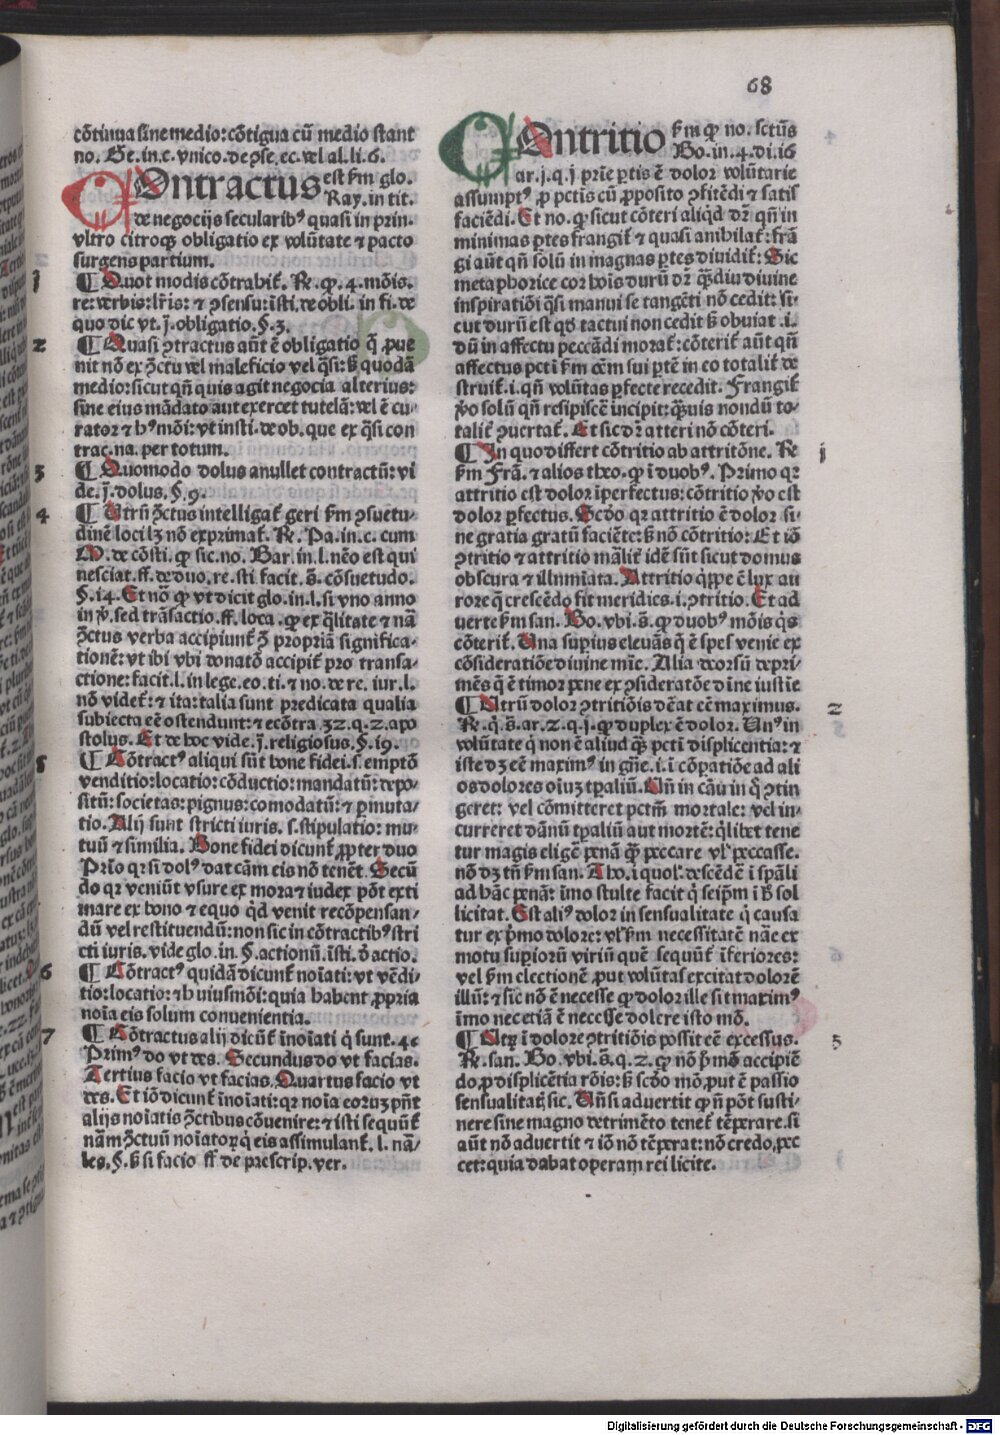 68
cõtinua sine medio: cõtigua cũ medio stant
no. Ge. in. c. vnico. de ꝓse. ec. vel al. li. 6.
COntractus est ẜm glo.
Ray. in tit.
de negocijs secularibꝰ quasi in prin.
vltro citroqꝫ obligatio ex volũtate ⁊ pacto
surgens partium.
¶ Quot modis cõtrahit̃. R̃. ꝙ. 4. mõis.
re: verbis: lr̃is: ⁊ ꝯsensu: ĩsti. de obli. in fi. de
quo dic vt. j̃. obligatio. §. 3.
¶ Quasi ꝯtractus aũt ẽ obligatio q̃ ꝓue
nit nõ ex ꝯ̃ctu vel maleficio vel q̃si: ẜ quodã
medio: sicut qñ quis agit negocia alterius:
sine eius mãdato aut exercet tutelã: vel ẽ cu/
rator ⁊ hꝰmõi: vt insti. de ob. que ex q̃si con
trac. na. per totum.
¶ Quomodo dolus anullet contractũ: vi
de. j̃. dolus. §. 9.
¶ Vtrũ ꝯ̃ctus intelligat̃ geri ẜm ꝯsuetu/
dinẽ loci lꝫ nõ exprimat̃. R̃. Pa. in. c. cum
M. de cõsti. ꝙ sic. no. Bar. in. l. nẽo est qui
nesciat. ff. de duo. re. sti facit. s̃. cõsuetudo.
§. 14. Et nõ ꝙ vt dicit glo. in. l. si vno anno
in ꝟ. sed trãsactio. ff. loca. ꝙ ex q̃litate ⁊ nã
ꝯ̃ctus verba accipiunt̃ ꝯ̃ propriã significa/
tionẽ: vt ibi vbi donatõ accipit̃ pro transa/
ctione: facit. l. in lege. eo. ti. ⁊ no. de re. iur. l.
nõ videt̃: ⁊ ita: talia sunt predicata qualia
subiecta eẽ ostendunt: ⁊ ecõtra 32. q. 2. apo
stolus. Et de hoc vide. j̃. religiosus. §. 19.
¶ Cõtractꝰ aliqui sũt bone fidei. s. emptõ
venditio: locatio: cõductio: mandatũ: depo/
sitũ: societas: pignus: comodatũ: ⁊ ꝑmuta/
tio. Alij sunt stricti iuris. s. stipulatio: mu/
tuũ ⁊ similia. Bone fidei dicunt̃ ꝓpter duo
Prĩo qꝛ si dolꝰ dat cãm eis nõ tenẽt. Secũ
do qꝛ veniũt vsure ex mora ⁊ iudex põt exti
mare ex bono ⁊ equo q̃d venit recõpensan/
dũ vel restituendũ: non sic in cõtractibꝰ stri
cti iuris. vide glo. in. §. actionũ. ĩsti. õ actio.
¶ Cõtractꝰ quidã dicunt̃ noĩati: vt vẽdi/
tio: locatio: ⁊ huiusmõi: quia habent ꝓpria
noĩa eis solum conuenientia.
¶ Cõtractus alij dicũt̃ ĩnoĩati q̃ sunt. 4.
Primꝰ do vt des. Secundus do vt facias.
Tertius facio vt facias. Quartus facio vt
des. Et iõ dicunt̃ ĩnoĩati: qꝛ noĩa eoꝝ pñt
alijs noĩatis ꝯ̃ctibus cõuenire: ⁊ isti sequũt̃
nãm ꝯ̃ctuũ noĩatoꝝ q̃ eis assimulant̃. l. nã/
les. §. ẜ si facio ff de prescrip. ver.
COntritio ẜm ꝙ no. sctũs
Bo. in. 4. di. 16
ar. j. q. j prĩe ꝑtis ẽ dolor volũtarie
assumptꝰ ꝓ pctis cũ ꝓposito ꝯfitẽdi ⁊ satis
faciẽdi. Et no. ꝙ sicut cõteri aliq̃d dr̃ qñ in
minimas ꝑtes frangit̃ ⁊ quasi anihilat̃: frã
gi aũt qñ solũ in magnas ꝑtes diuidit̃: Sic
metaphorice cor hoĩs durũ dr̃ q̃diu diuine
inspiratiõi q̃si manui se tangẽti nõ cedit: si/
cut durũ est qđ tactui non cedit ẜ obuiat .i.
dũ in affectu peccãdi morat̃: cõterit̃ aũt qñ
affectus pcti ẜm oẽm sui ꝑtẽ in eo totalit̃ de
struit̃. i. qñ volũtas ꝑfecte recedit. Frangit̃
ꝟo solũ qñ resipiscẽ incipit: q̃uis nondũ to/
talit̃ ꝯuertat̃. Et sic dr̃ atteri nõ cõteri.
¶ In quo differt cõtritio ab attritõne. R̃
ẜm Frã. ⁊ alios theo. ꝙ ĩ duobꝰ. Primo qꝛ
attritio est dolor ĩperfectus: cõtritio ꝟo est
dolor ꝑfectus. Scđo qꝛ attritio ẽ dolor si/
ne gratia gratũ faciẽte: ẜ nõ cõtritio: Et iõ
ꝯtritio ⁊ attritio mãlit̃ idẽ sũt sicut domus
obscura ⁊ illumĩata. Attritio q̃ppe ẽ lux au
rore q̃ crescẽdo fit meridies. i. ꝯtritio. Et ad
uerte ẜm san. Bo. vbi. s̃. ꝙ duobꝰ mõis q̃s
cõterit̃. Vna supius eleuãs q̃ ẽ spes venie ex
cõsideratiõe diuine mĩe. Alia deorsũ depri/
mẽs q̃ ẽ timor pene ex ꝯsideratõe diĩne iustĩe
¶ Vtrũ dolor ꝯtritiõis debeat eẽ maximus.
R̃. q̃. s̃. ar. 2. q. j. ꝙ duplex ẽ dolor. Vnꝰ in
volũtate q̃ non ẽ aliud q̃ pcti displicentia: ⁊
iste dꝫ eẽ maximꝰ in gñe. i. ĩ cõpatiõe ad ali
os dolores oĩuꝫ tꝑaliũ. Vñ in cãu in q̃ ꝯtin
geret: vel cõmitteret pctm̃ mortale: vel in/
curreret dãnũ tꝑaliũ aut mortẽ: q̃libet tene
tur magis eligẽ penã q̃ peccare vl̃ peccasse.
nõ dꝫ tñ ẜm san. Tho. ĩ quol. descẽdẽ ĩ spãli
ad hãc penã: ĩmo stulte facit q̃ seip̃m ĩ ꝟ sol
licitat. Est aliꝰ dolor in sensualitate q̃ causa
tur ex p̃mo dolore: vl̃ ẜm necessitatẽ nãe ex
motu supioꝝ viriũ quẽ sequũt̃ ĩferiores:
vel ẜm electionẽ ꝓut volũtas excitat dolorẽ
illũ: ⁊ sic nõ ẽ necesse ꝙ dolor ille sit maximꝰ
ĩmo nec etiã ẽ necesse dolere isto mõ.
¶ Vtꝝ ĩ dolore ꝯtritiõis possit eẽ excessus.
R̃. san. Bo. vbi. s̃. q. 2. ꝙ nõ p̃mõ accipiẽ
do, ꝓ displicẽtia rõis: ẜ scđo mõ, put ẽ passio
sensualitatꝭ sic. Vñ si aduertit ꝙ ñ põt susti/
nere sine magno detrimẽto tenet̃ tẽperare. si
aũt nõ aduertit ⁊ iõ nõ tẽperat: nõ credo, pec
cet: quia dabat operam rei licite.
Digitalisierung gefördert durch die Deutsche Forschungsgemeinschaft - DFG